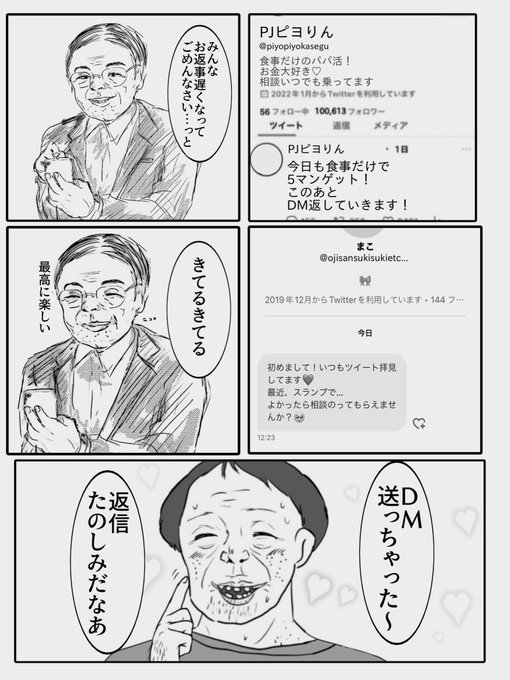 PJピヨりん
@piyopiyokasegu
食事だけのパパ活！
お金大好き♡
相談いつでも乗ってます
2022年1月からTwitterを利用しています
56 フォロー中 100,613 フォロワー
ツイート 返信 メディア
PJピヨりん ・1日
今日も食事だけで
5マンゲット！
このあと
DM返していきます！
みんな
お返事遅くなって
ごめんなさい…っと
まこ
@ojisansukisukietc...
2019年12月からTwitterを利用しています・144 フ…
今日
初めまして！いつもツイート拝見
してます🖤
最近、スランプで…
よかったら相談のってもらえませ
んか？🥺
12:23
きてるきてる
ニコォ
最高に楽しい
DM
送っちゃった〜
返信
たのしみだなあ